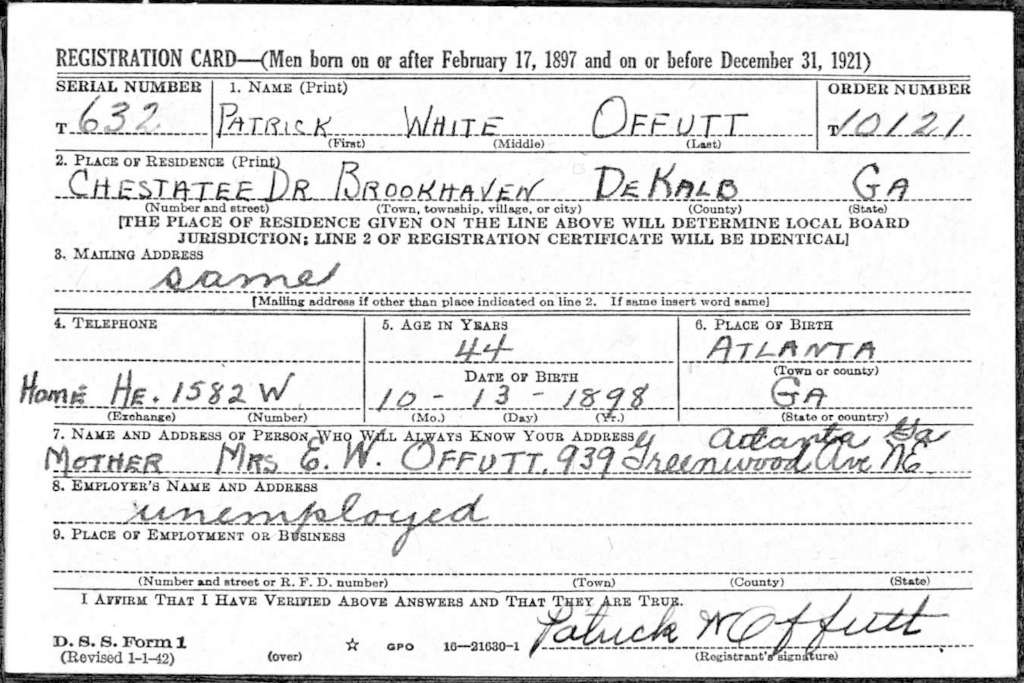 REGISTRATION CARD—(Men born on or after February 17, 1897 and on or before December 31, 1921)
SERIAL NUMBER 1. NAME (Print) ORDER NUMBER
T 632 PATRICK WHITE OFFUTT T10121
(First) (Middle) (Last)
2. PLACE OF RESIDENCE (Print)
CHESTATEE DR BROOKHAVEN DEKALB GA
(Number and street) (Town, township, village, or city) (County) (State)
[THE PLACE OF RESIDENCE GIVEN ON THE LINE ABOVE WILL DETERMINE LOCAL BOARD
JURISDICTION; LINE 2 OF REGISTRATION CERTIFICATE WILL BE IDENTICAL]
3. MAILING ADDRESS
same
[Mailing address if other than place indicated on line 2. If same insert word same]
4. TELEPHONE 5. AGE IN YEARS 6. PLACE OF BIRTH
44 ATLANTA
DATE OF BIRTH (Town or county)
Home HE. 1582 W 10 - 13 - 1898 GA
(Exchange) (Number) (Mo.) (Day) (Yr.) (State or country)
7. NAME AND ADDRESS OF PERSON WHO WILL ALWAYS KNOW YOUR ADDRESS Atlanta Ga
MOTHER MRS E. W. OFFUTT. 939 Greenwood Ave NE.
8. EMPLOYER'S NAME AND ADDRESS
unemployed
9. PLACE OF EMPLOYMENT OR BUSINESS
(Number and street or R. F. D. number) (Town) (County) (State)
I AFFIRM THAT I HAVE VERIFIED ABOVE ANSWERS AND THAT THEY ARE TRUE.
Patrick W Offutt
D. S. S. Form 1
(Revised 1-1-42) (over) ☆ GPO 16—21630-1 (Registrant's signature)